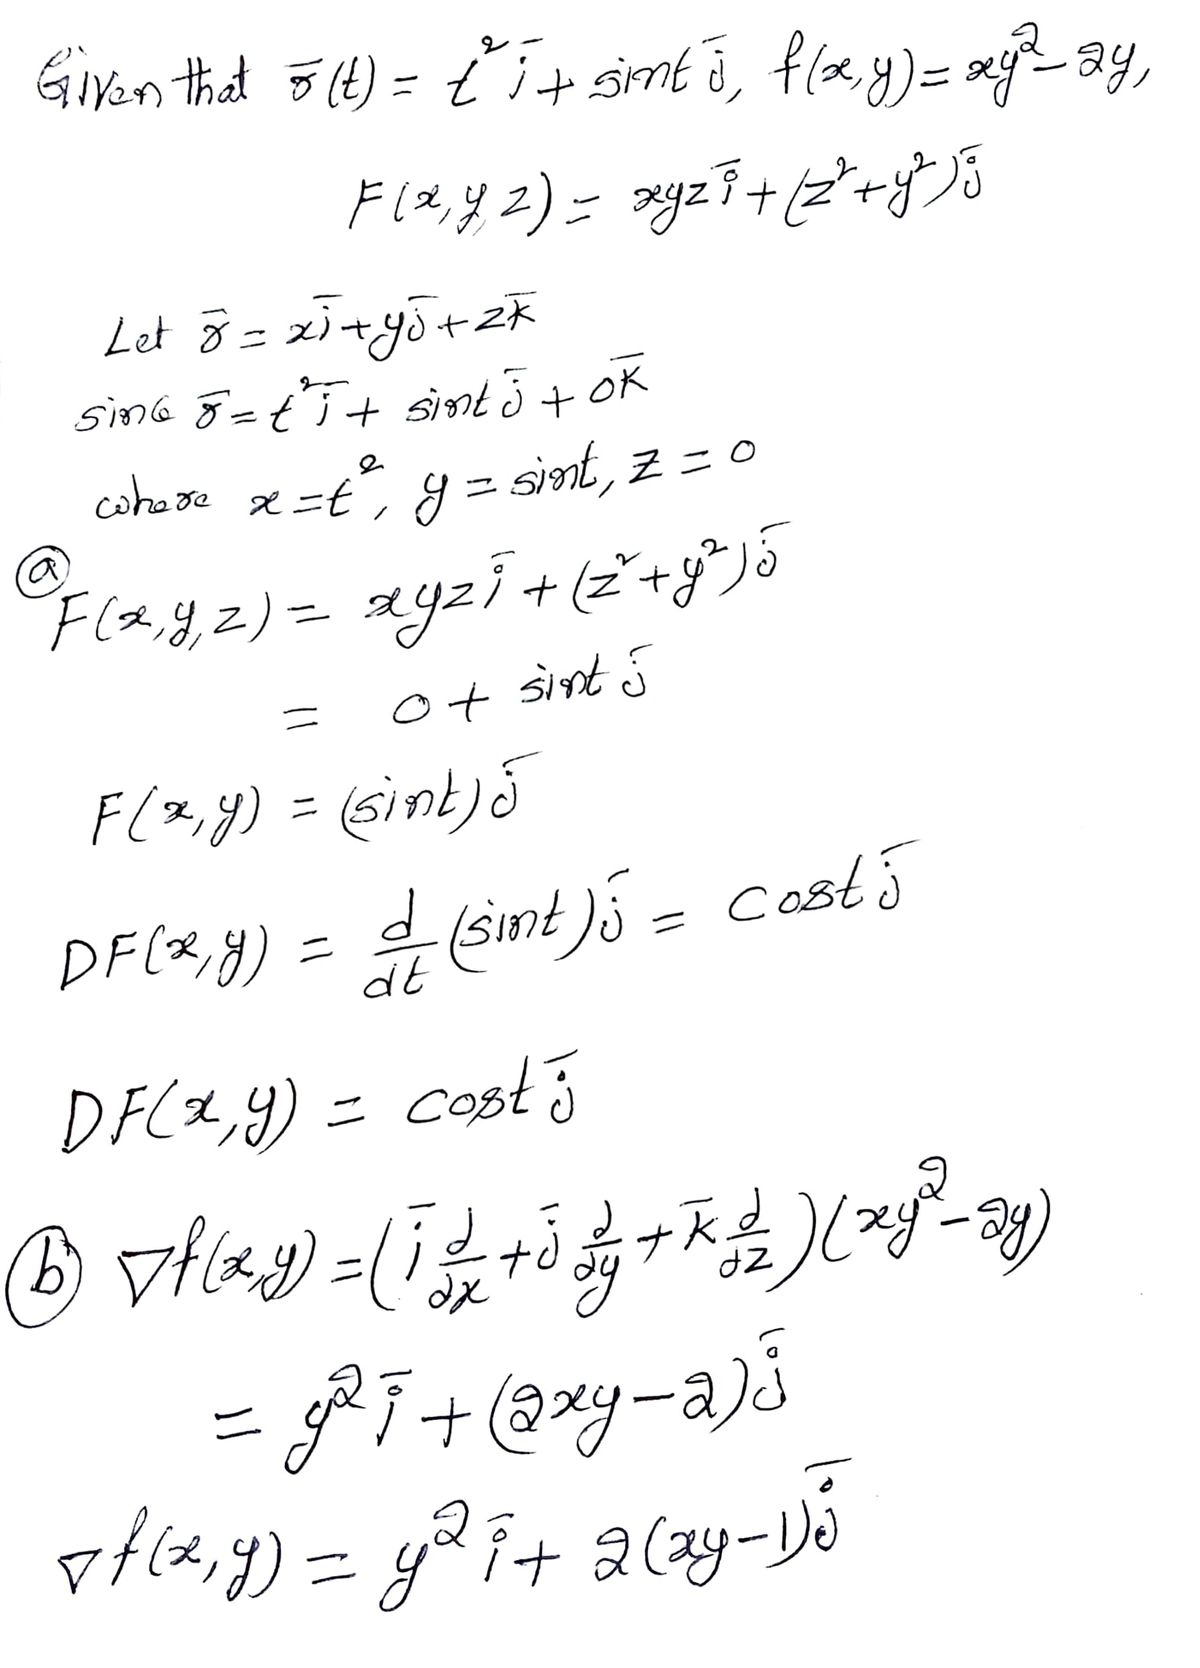 Given that r̄(t) = t² ī + sint j̄, f(x,y) = xy² - 2y,
F(x,y,z) = xyz ī + (z² + y²) j̄
Let r̄ = xī + yj̄ + zk̄
since r̄ = t² ī + sint j̄ + 0k̄
where x = t², y = sint, z = 0
(a)
F(x,y,z) = xyz ī + (z² + y²) j̄
= 0 + sint j̄
F(x,y) = (sint) j̄
DF(x,y) = d/dt (sint) j̄ = cost j̄
DF(x,y) = cost j̄
(b) ∇f(x,y) = (ī d/dx + j̄ d/dy + k̄ d/dz)(xy² - 2y)
= y² ī + (2xy - 2) j̄
∇f(x,y) = y² ī + 2(xy - 1) j̄